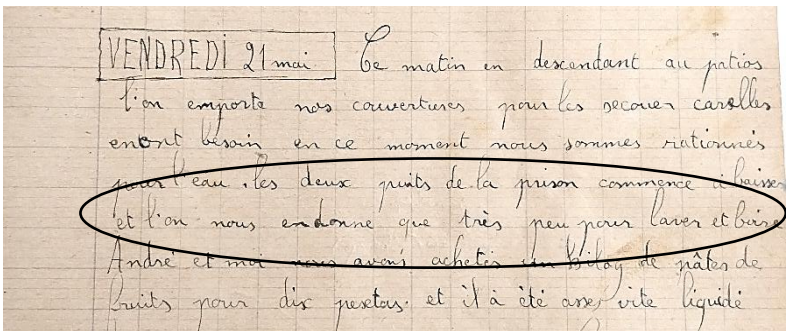 VENDREDI 21 mai Ce matin en descendant au patios
l'on emporte nos couvertures pour les secouer car elles
en ont besoin en ce moment nous sommes rationnés
pour l'eau. les deux puits de la prison commence à baisser
et l'on nous en donne que très peu pour laver et boire
André et moi nous avons achetés un kilog de pâtes de
fruits pour dix pesetas. et il à été assez vite liquidé